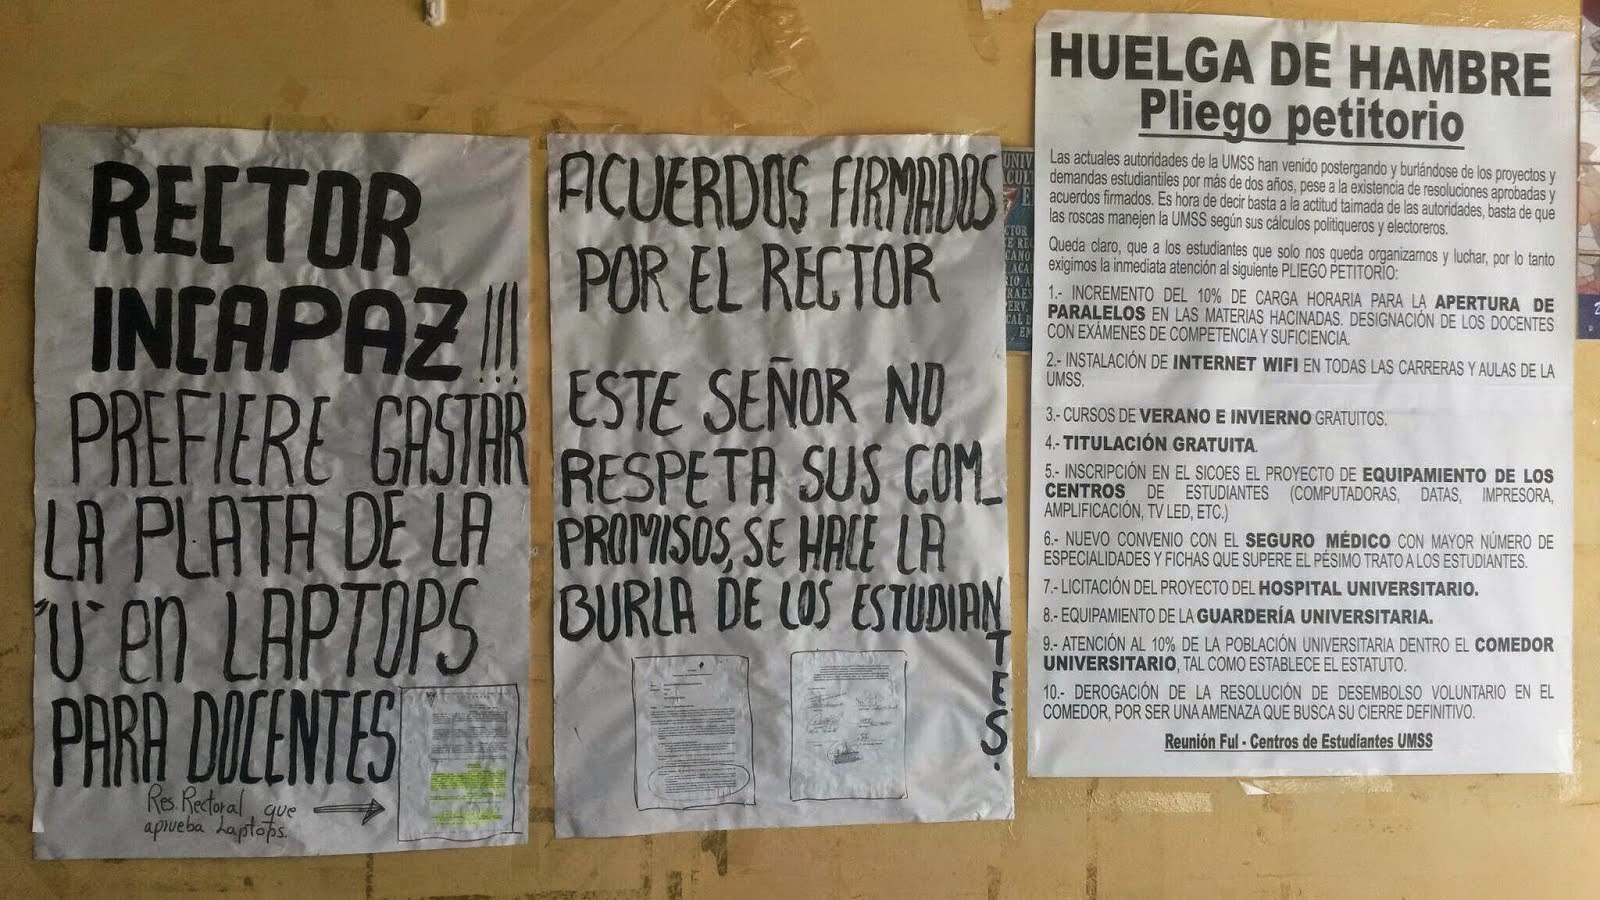 RECTOR
INCAPAZ!!!
PREFIERE GASTAR
LA PLATA DE LA
"U" en LAPTOPS
PARA DOCENTES
Res. Rectoral que
aprueba Laptops.
ACUERDOS FIRMADOS
POR EL RECTOR
ESTE SEÑOR NO
RESPETA SUS COM_
PROMISOS, SE HACE LA
BURLA DE LOS ESTUDIAN
TES.
HUELGA DE HAMBRE
Pliego petitorio
Las actuales autoridades de la UMSS han venido postergando y burlándose de los proyectos y
demandas estudiantiles por más de dos años, pese a la existencia de resoluciones aprobadas y
acuerdos firmados. Es hora de decir basta a la actitud taimada de las autoridades, basta de que
las roscas manejen la UMSS según sus cálculos politiqueros y electoreros.
Queda claro, que a los estudiantes que solo nos queda organizarnos y luchar, por lo tanto
exigimos la inmediata atención al siguiente PLIEGO PETITORIO:
1.- INCREMENTO DEL 10% DE CARGA HORARIA PARA LA APERTURA DE
PARALELOS EN LAS MATERIAS HACINADAS. DESIGNACIÓN DE LOS DOCENTES
CON EXÁMENES DE COMPETENCIA Y SUFICIENCIA.
2.- INSTALACIÓN DE INTERNET WIFI EN TODAS LAS CARRERAS Y AULAS DE LA
UMSS.
3.- CURSOS DE VERANO E INVIERNO GRATUITOS.
4.- TITULACIÓN GRATUITA.
5.- INSCRIPCIÓN EN EL SICOES EL PROYECTO DE EQUIPAMIENTO DE LOS
CENTROS DE ESTUDIANTES (COMPUTADORAS, DATAS, IMPRESORA,
AMPLIFICACIÓN, TV LED, ETC.)
6.- NUEVO CONVENIO CON EL SEGURO MÉDICO CON MAYOR NÚMERO DE
ESPECIALIDADES Y FICHAS QUE SUPERE EL PÉSIMO TRATO A LOS ESTUDIANTES.
7.- LICITACIÓN DEL PROYECTO DEL HOSPITAL UNIVERSITARIO.
8.- EQUIPAMIENTO DE LA GUARDERÍA UNIVERSITARIA.
9.- ATENCIÓN AL 10% DE LA POBLACIÓN UNIVERSITARIA DENTRO EL COMEDOR
UNIVERSITARIO, TAL COMO ESTABLECE EL ESTATUTO.
10.- DEROGACIÓN DE LA RESOLUCIÓN DE DESEMBOLSO VOLUNTARIO EN EL
COMEDOR, POR SER UNA AMENAZA QUE BUSCA SU CIERRE DEFINITIVO.
Reunión Ful - Centros de Estudiantes UMSS